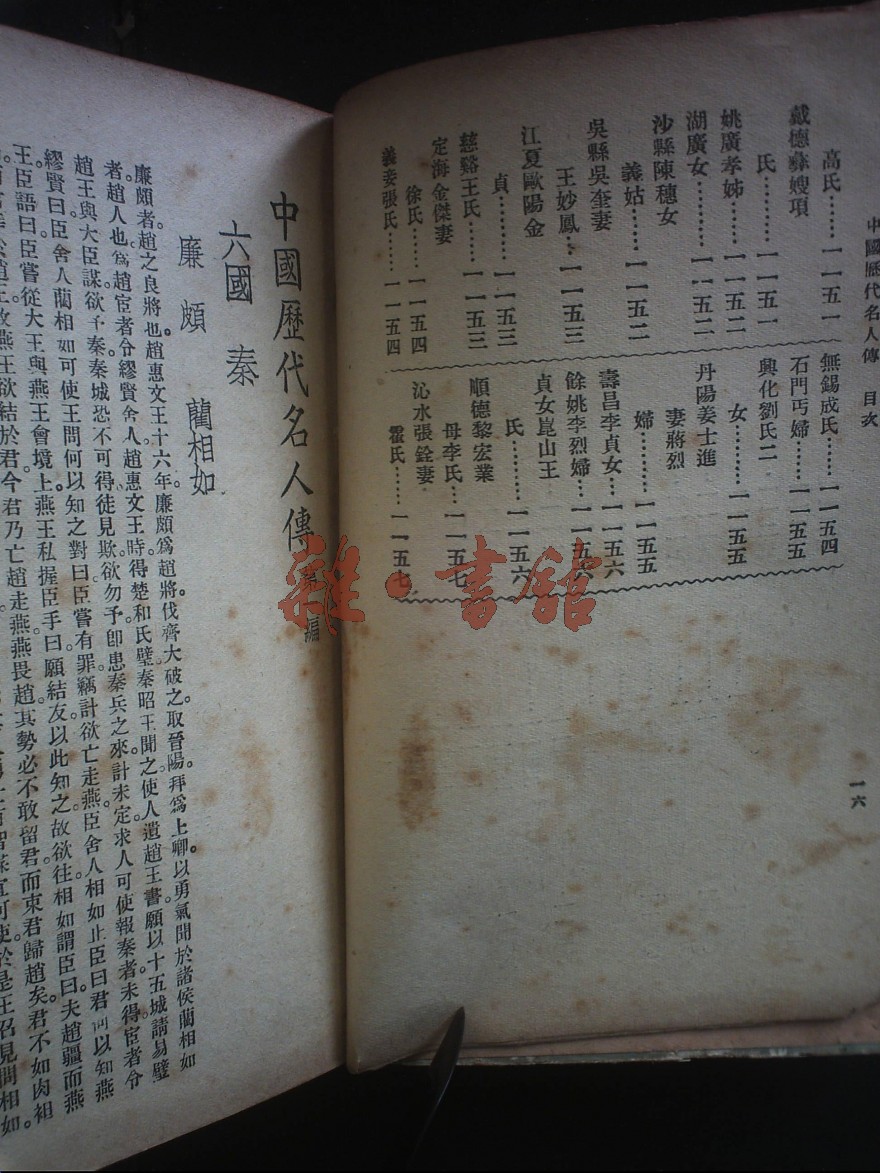 中國歷代名人傳 目次
高氏………一一五一
戴德彝嫂項
氏………一一五一
姚廣孝姊……一一五二
湖廣女………一一五二
沙縣陳穗女
義姑………一一五二
吳縣吳奎妻
王妙鳳…一一五三
江夏歐陽金
貞………一一五三
慈谿王氏……一一五三
定海金傑妻
徐氏………一一五四
義妾張氏……一一五四
無錫成氏……一一五四
石門丐婦……一一五五
興化劉氏二
女………一一五五
丹陽姜士進
妻蔣烈
婦………一一五五
壽昌李貞女…一一五六
餘姚李烈婦…一一五六
貞女崑山王
氏………一一五六
順德黎宏業
母李氏…一一五七
沁水張銓妻
霍氏………一一五七
一六
中國歷代名人傳 編
六國 秦
廉頗 藺相如
廉頗者趙之良將也趙惠文王十六年。廉頗爲趙將伐齊大破之。取晉陽。拜爲上卿。以勇氣聞於諸侯藺相如
者。趙人也爲趙宦者令繆賢舍人。趙惠文王時。得楚和氏璧秦昭王聞之。使人遺趙王書。願以十五城請易璧
趙王與大臣謀。欲予秦。秦城恐不可得。徒見欺。欲勿予。卽患秦兵之來。計未定。求人可使報秦者。未得。宦者令
繆賢曰。臣舍人藺相如可使。王問何以知之。對曰。臣嘗有罪。竊計欲亡走燕。臣舍人相如止臣曰。君何以知燕
王。臣語曰。臣嘗從大王與燕王會境上。燕王私握臣手曰。願結友。以此知之。故欲往。相如謂臣曰。夫趙彊而燕
王欲結於君。今君乃亡趙走燕。燕畏趙。其勢必不敢留君。而束君歸趙矣。君不如肉袒
於是王召見問相如。
雜·書館